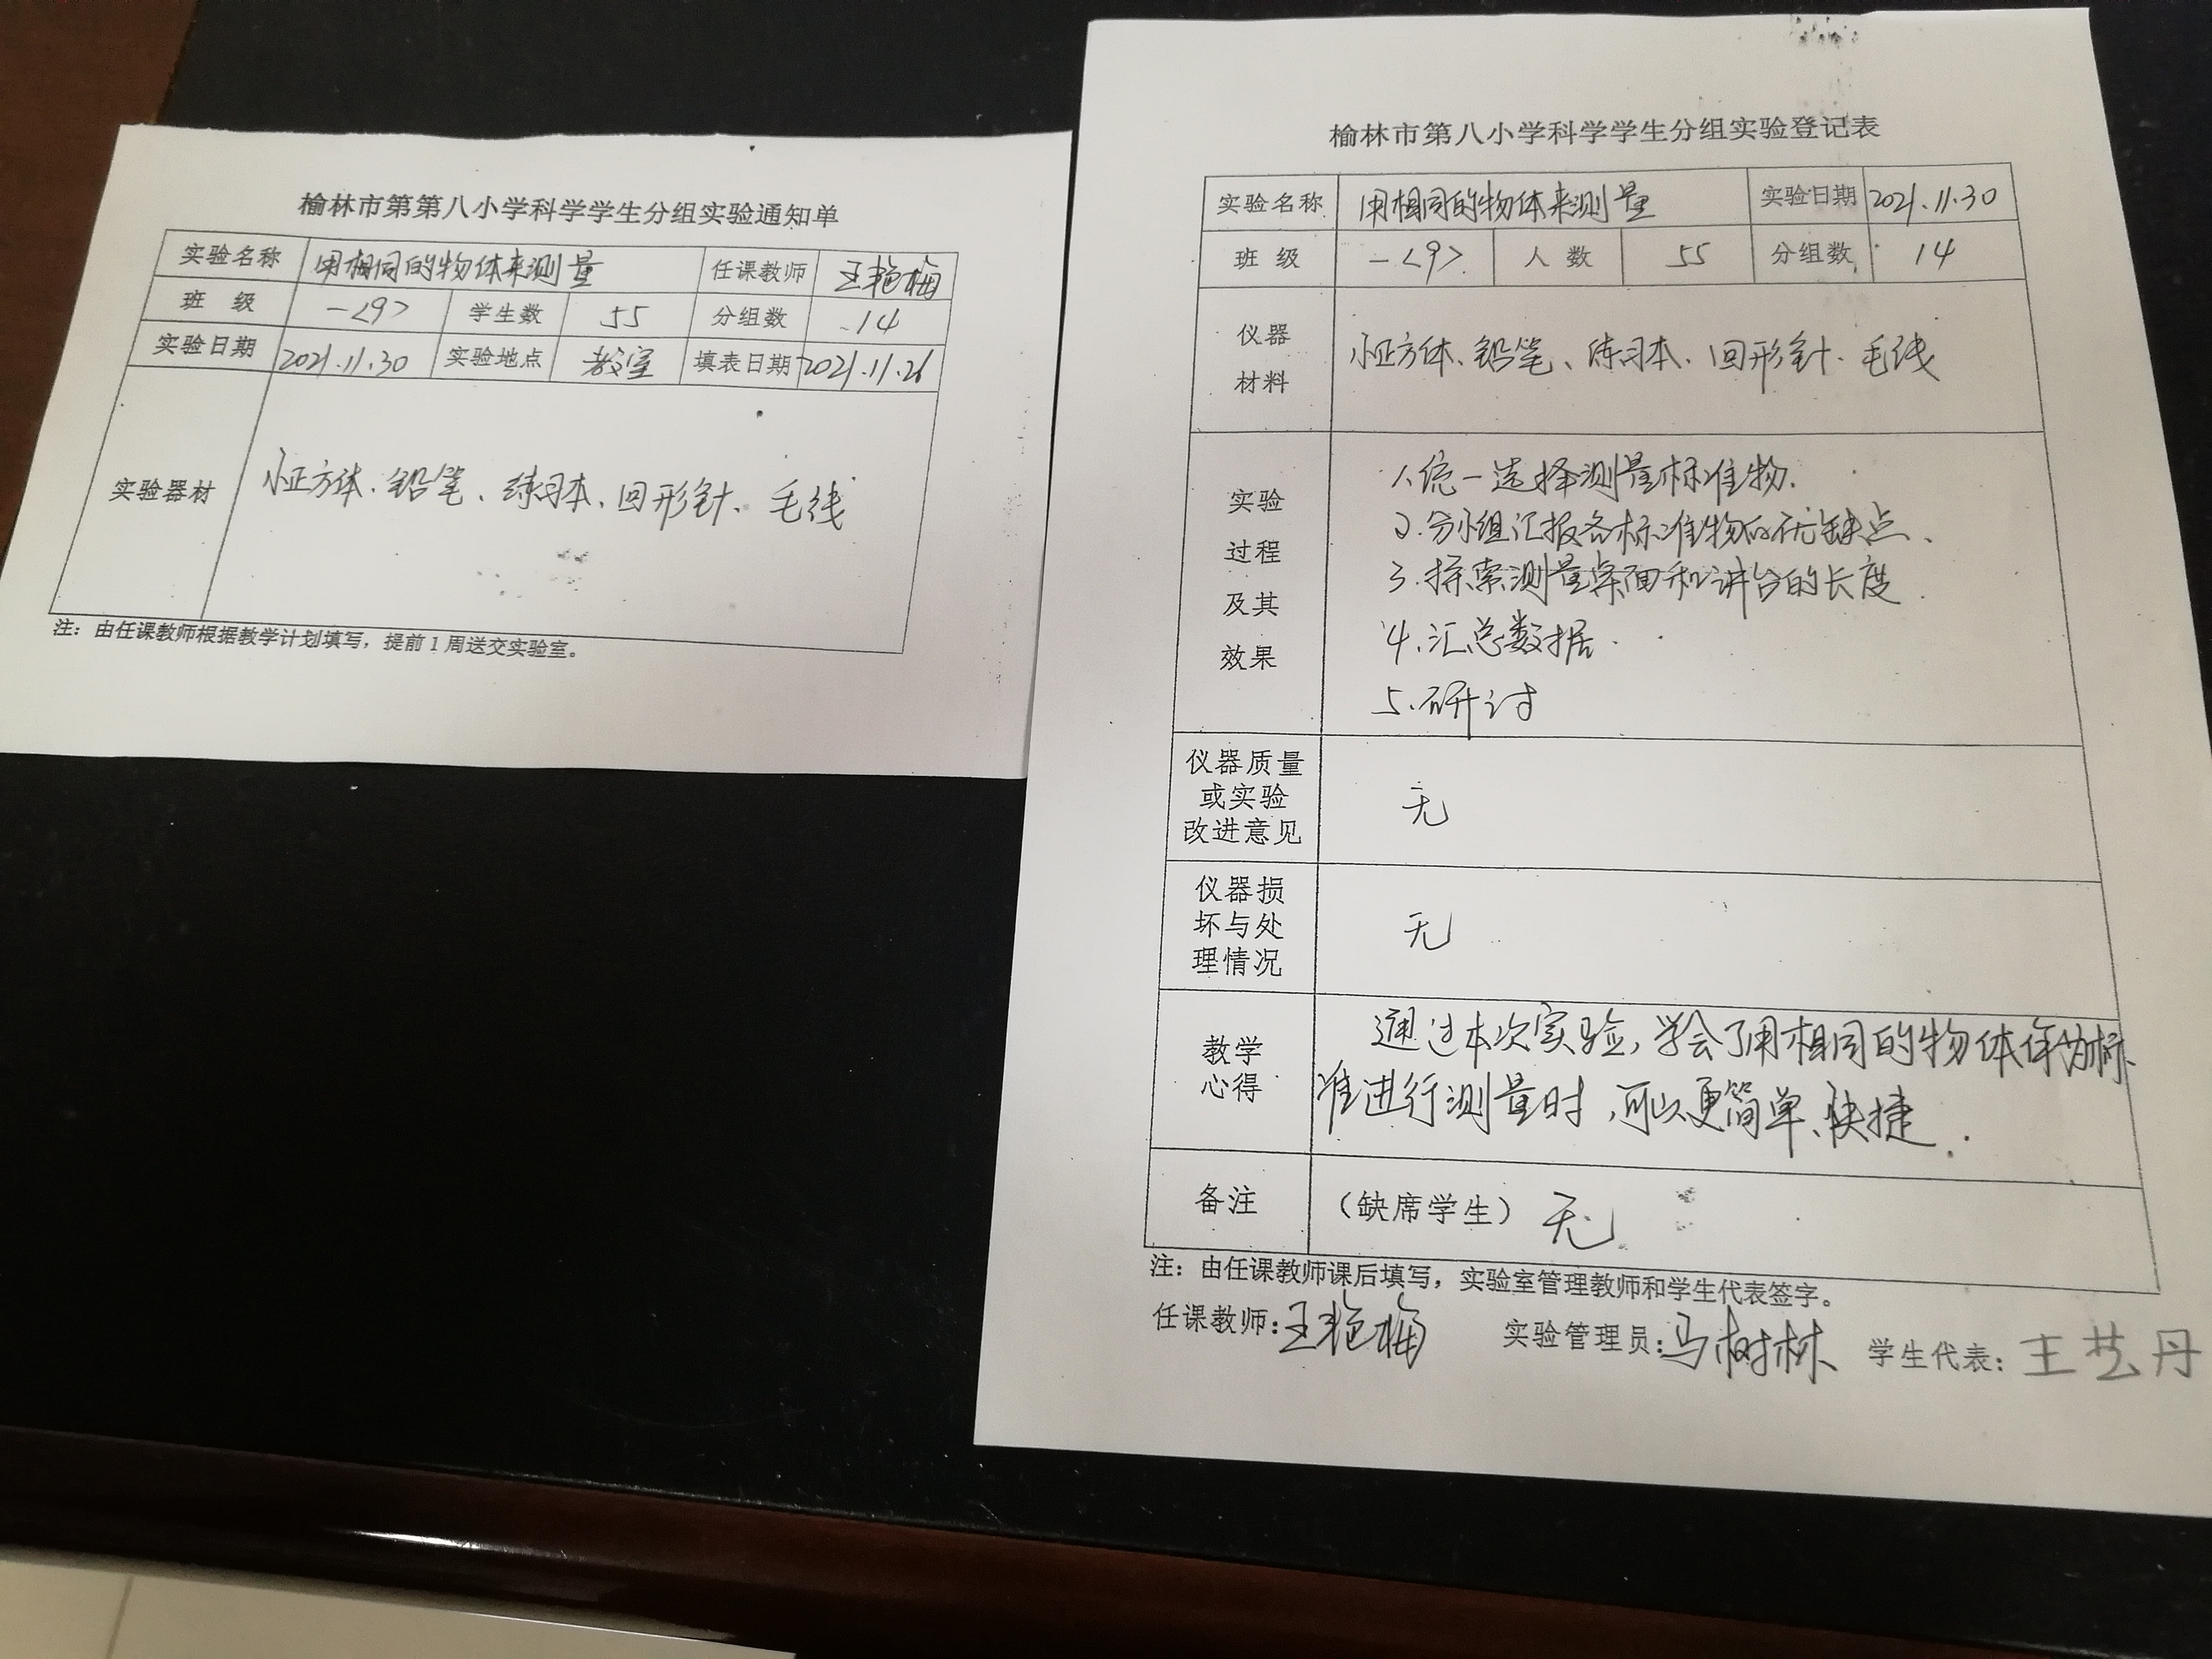 榆林市第第八小学科学学生分组实验通知单
实验名称 用相同的物体来测量 任课教师 王艳梅
班 级 一<9> 学生数 55 分组数 14
实验日期 2021.11.30 实验地点 教室 填表日期 2021.11.26
实验器材 小正方体、铅笔、练习本、回形针、毛线
注：由任课教师根据教学计划填写，提前1周送交实验室。
榆林市第八小学科学学生分组实验登记表
实验名称 用相同的物体来测量 实验日期 2021.11.30
班 级 一<9> 人 数 55 分组数 14
仪器
材料
小正方体、铅笔、练习本、回形针、毛线
实验
过程
及其
效果
1.统一选择测量标准物.
2.分小组汇报各标准物的优缺点、
3.探索测量桌面和讲台的长度.
4.汇总数据.
5.研讨
仪器质量
或实验
改进意见
无
仪器损
坏与处
理情况
无
教学
心得
通过本次实验,学会了用相同的物体作为标
准进行测量时,可以更简单、快捷.
备注 （缺席学生） 无
注：由任课教师课后填写，实验室管理教师和学生代表签字。
任课教师：王艳梅 实验管理员：马树林 学生代表：王艺丹